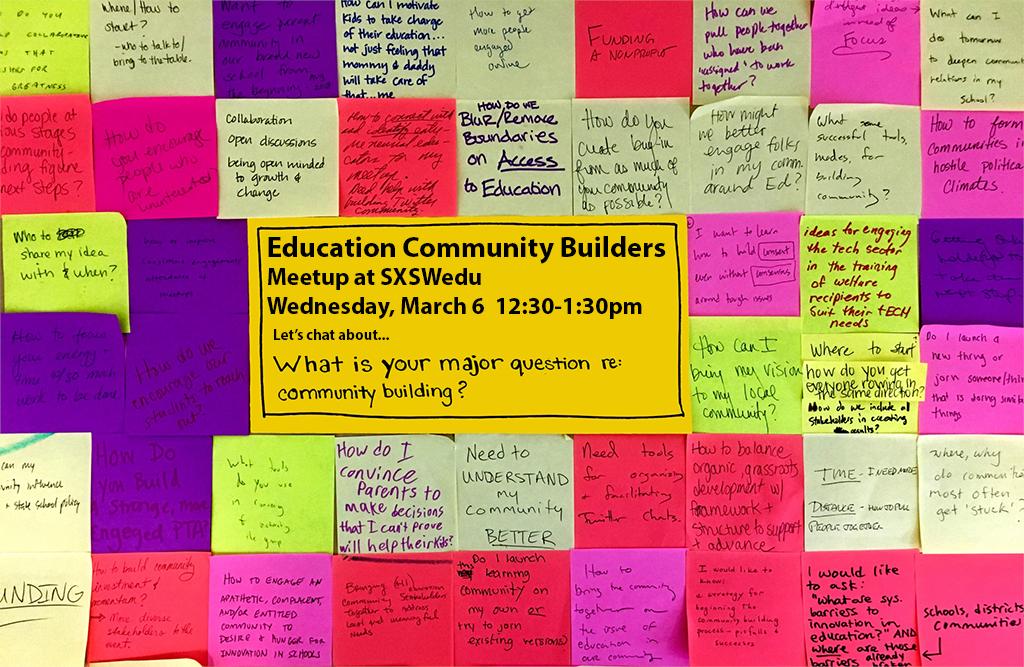 DO YOU
COLLABORATE
AS THAT
GREATNESS
Where/How to
start?
- who to talk to/
bring to the table.
Want to
engage parent
community in
our brand new
school from
the beginning
How can I motivate
kids to take charge
of their education...
not just feeling that
mommy & daddy
will take care of
that...me
How to get
more people
engaged
online
FUNDING
A NONPROFIT
How can we
pull people together
who have been
"assigned" to work
together?
ideas
need of
Focus
What can I
do tomorrow
to deepen community
relations in my
school?
do people at
various stages
community-
building figure
next steps?
How do
you encourage
people who
are
Collaboration
Open discussions
being open minded
to growth &
change
How to connect with
my
meetup.
Need help with
building Twitter
community.
HOW DO WE
Blur/Remove
Boundaries
on Access
to Education
How do you
create buy-in
from as much of
your community
as possible?!
How might
we better
engage folks
in my comm.
around Ed?
What some
successful tools,
modes, for
building
community?
How to form
communities in
hostile political
climates.
Who to
share my idea
with & when?
engagement
attendance at
meetups
Education Community Builders
Meetup at SXSWedu
Wednesday, March 6 12:30-1:30pm
Let's chat about...
What is your major question re:
community building?
I want to learn
how to build consent
even without consensus
around tough issues
ideas for engaging
the tech sector
in the training
of welfare
recipients to
suit their TECH
needs
Getting
to
take
next step
How to focus
your energy -
time
work to be done
How do we
encourage our
students to reach
out?
How can I
bring my vision
to my local
community?
Where to start
how do you get
everyone rowing in
the same direction?
How do we include all
stakeholders in creating
results?
Do I launch a
new thing or
join someone/thing
that is doing similar
things
can my
community influence
& state school policy
How Do
you Build
a strange, more
engaged PTA?
What tools
do you use
in running
the group
How do I
convince
Parents to
make decisions
that I can't prove
will help their kids?
Need to
UNDERSTAND
my
community
BETTER
Need tools
for organizing
& facilitating
Twitter chats.
How to balance
organic, grassroots
development w/
framework +
structure to support
+ advance
TIME - I NEED MORE
DISTANCE - HOW TO PULL
PEOPLE TOGETHER
Where, why
do communities
most often
get 'stuck'?
FUNDING
How to build community
investment &
momentum?
→ More diverse
stakeholders to the
event.
HOW TO ENGAGE AN
APATHETIC, COMPLACENT,
AND/OR ENTITLED
COMMUNITY TO
DESIRE & HUNGER FOR
INNOVATION IN SCHOOLS
Bringing (all)
community stakeholders
together to address
local and meaningful
needs
Do I launch
learning
community on
my own or
try to join
existing
How to
bring the community
together on
the issue of
education in
our community
I would like to
know:
a strategy for
beginning the
community building
process - pitfalls &
successes
I would like
to ask:
"What are sys.
barriers to
innovation in
education?" AND
where are those
barriers already
broken
schools, districts
communities